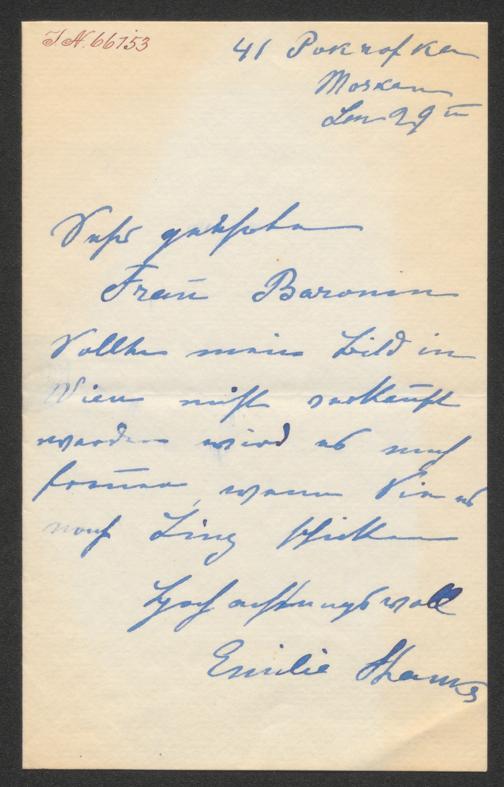 I.N. 66753
41 Pokrofka
Moskau
Den 29
Sehr geehrte
Frau Baronin
Sollte mein Bild in
Wien nicht verkauft
werden wird es mich
freuen, wenn Sie es
nach Linz schicken
Hochachtungsvoll
Emilie